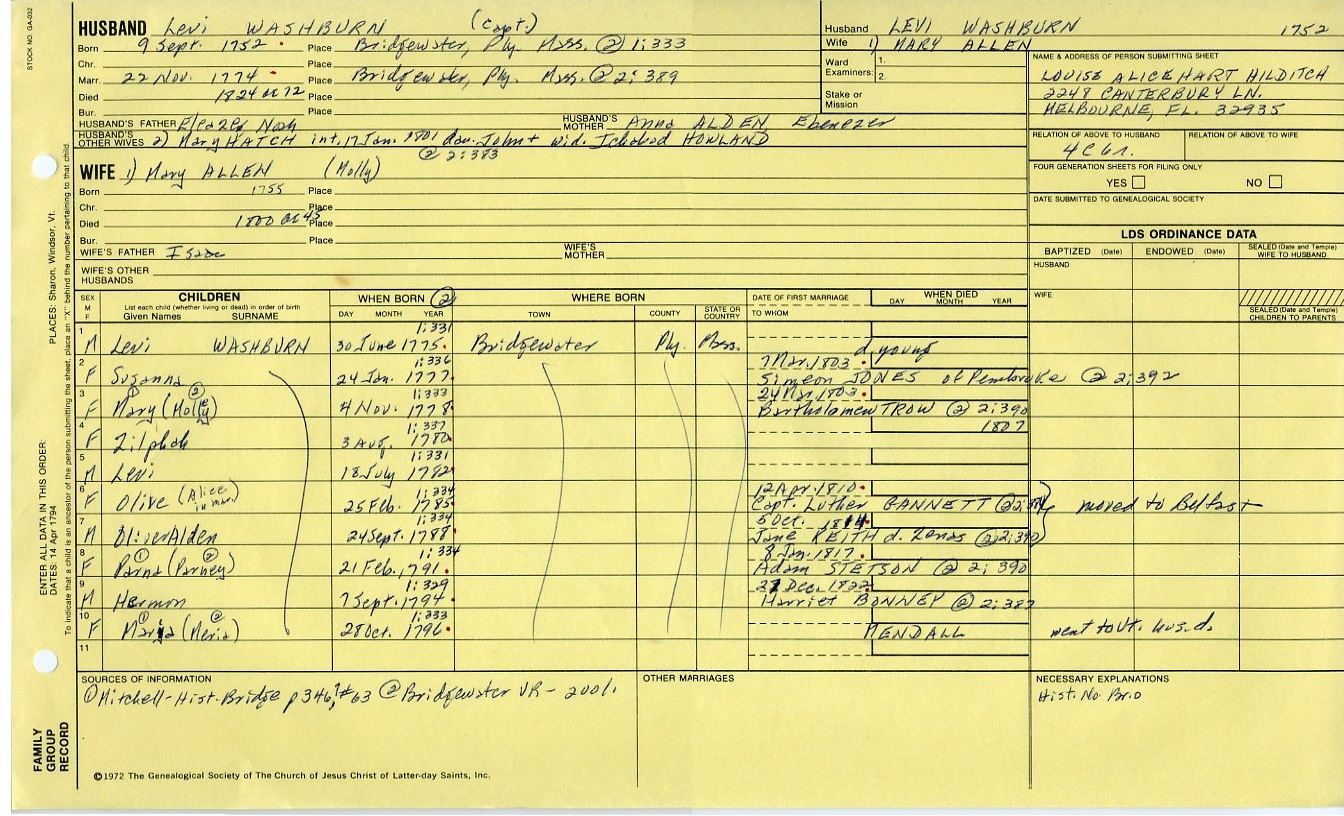 STOCK NO. GA-032
HUSBAND Levi WASHBURN (Capt.)
Born 9 Sept. 1752 Place Bridgewater, Ply. Mass. ② 1:333
Chr. Place
Marr. 22 Nov. 1774 Place Bridgewater, Ply. Mass. ② 2:389
Died 1824 ae 72 Place
Bur. Place
HUSBAND'S FATHER Eleazer Noah HUSBAND'S MOTHER Anna ALDEN Ebenezer
HUSBAND'S OTHER WIVES 2) Mary HATCH int. 17 Jan. 1801 dau. John + wid. Ichabod HOWLAND
② 2:383
WIFE 1) Mary ALLEN (Molly)
Born 1755 Place
Chr. Place
Died 1800 ae 45 Place
Bur. Place
WIFE'S FATHER Isaac WIFE'S MOTHER
WIFE'S OTHER HUSBANDS
Husband LEVI WASHBURN 1752
Wife 1) MARY ALLEN
Ward 1.
Examiners: 2.
Stake or Mission
NAME & ADDRESS OF PERSON SUBMITTING SHEET
LOUISE ALICE HART HILDITCH
2248 CANTERBURY LN.
MELBOURNE, FL. 32935
RELATION OF ABOVE TO HUSBAND RELATION OF ABOVE TO WIFE
4C6r.
FOUR GENERATION SHEETS FOR FILING ONLY
YES NO
DATE SUBMITTED TO GENEALOGICAL SOCIETY
LDS ORDINANCE DATA
BAPTIZED (Date) ENDOWED (Date) SEALED (Date and Temple) WIFE TO HUSBAND
HUSBAND
WIFE
SEALED (Date and Temple) CHILDREN TO PARENTS
SEX M F CHILDREN WHEN BORN ② WHERE BORN DATE OF FIRST MARRIAGE WHEN DIED
List each child (whether living or dead) in order of birth
Given Names SURNAME DAY MONTH YEAR TOWN COUNTY STATE OR COUNTRY TO WHOM DAY MONTH YEAR
1 1:331
M Levi WASHBURN 30 June 1775 Bridgewater Ply. Mass. d. young
2 1:336 7 Mar. 1803
F Susanna 24 Jan. 1777 Simeon JONES of Pembroke ② 2:392
3 ① ② 1:333 24 Mar. 1803
F Mary (Molly) 4 Nov. 1778 Bartholomew TROW ② 2:390
4 1:337 1807
F Zilphah 3 Aug. 1780
5 1:331
M Levi 18 July 1782
6 1:334 12 Apr. 1810
F Olive (Alice in mar.) 25 Feb. 1785 Capt. Luther GANNETT moved to Belfast
7 1:334 5 Oct. 1814
M Oliver Alden 24 Sept. 1788 Jane KEITH d. Zenas ② 2:390
8 ① ② 1:334 8 Jan. 1817
F Parna (Parney) 21 Feb. 1791 Adam STETSON ② 2:390
9 1:329 27 Dec. 1822
M Hermon 7 Sept. 1794 Harriet BONNEY ② 2:387
10 ① ② 1:333
F Maria (Meria) 28 Oct. 1796 MENDALL went to Vt. hus. d.
11
SOURCES OF INFORMATION OTHER MARRIAGES NECESSARY EXPLANATIONS
① Mitchell - Hist. Bridge p 346, #63 ② Bridgewater VR - 2001. Hist. No. Brid
©1972 The Genealogical Society of The Church of Jesus Christ of Latter-day Saints, Inc.
FAMILY GROUP RECORD
ENTER ALL DATA IN THIS ORDER:
DATES: 14 Apr 1794 PLACES: Sharon, Windsor, Vt.
To indicate that a child is an ancestor of the person submitting the sheet, place an "X" behind the number pertaining to that child.